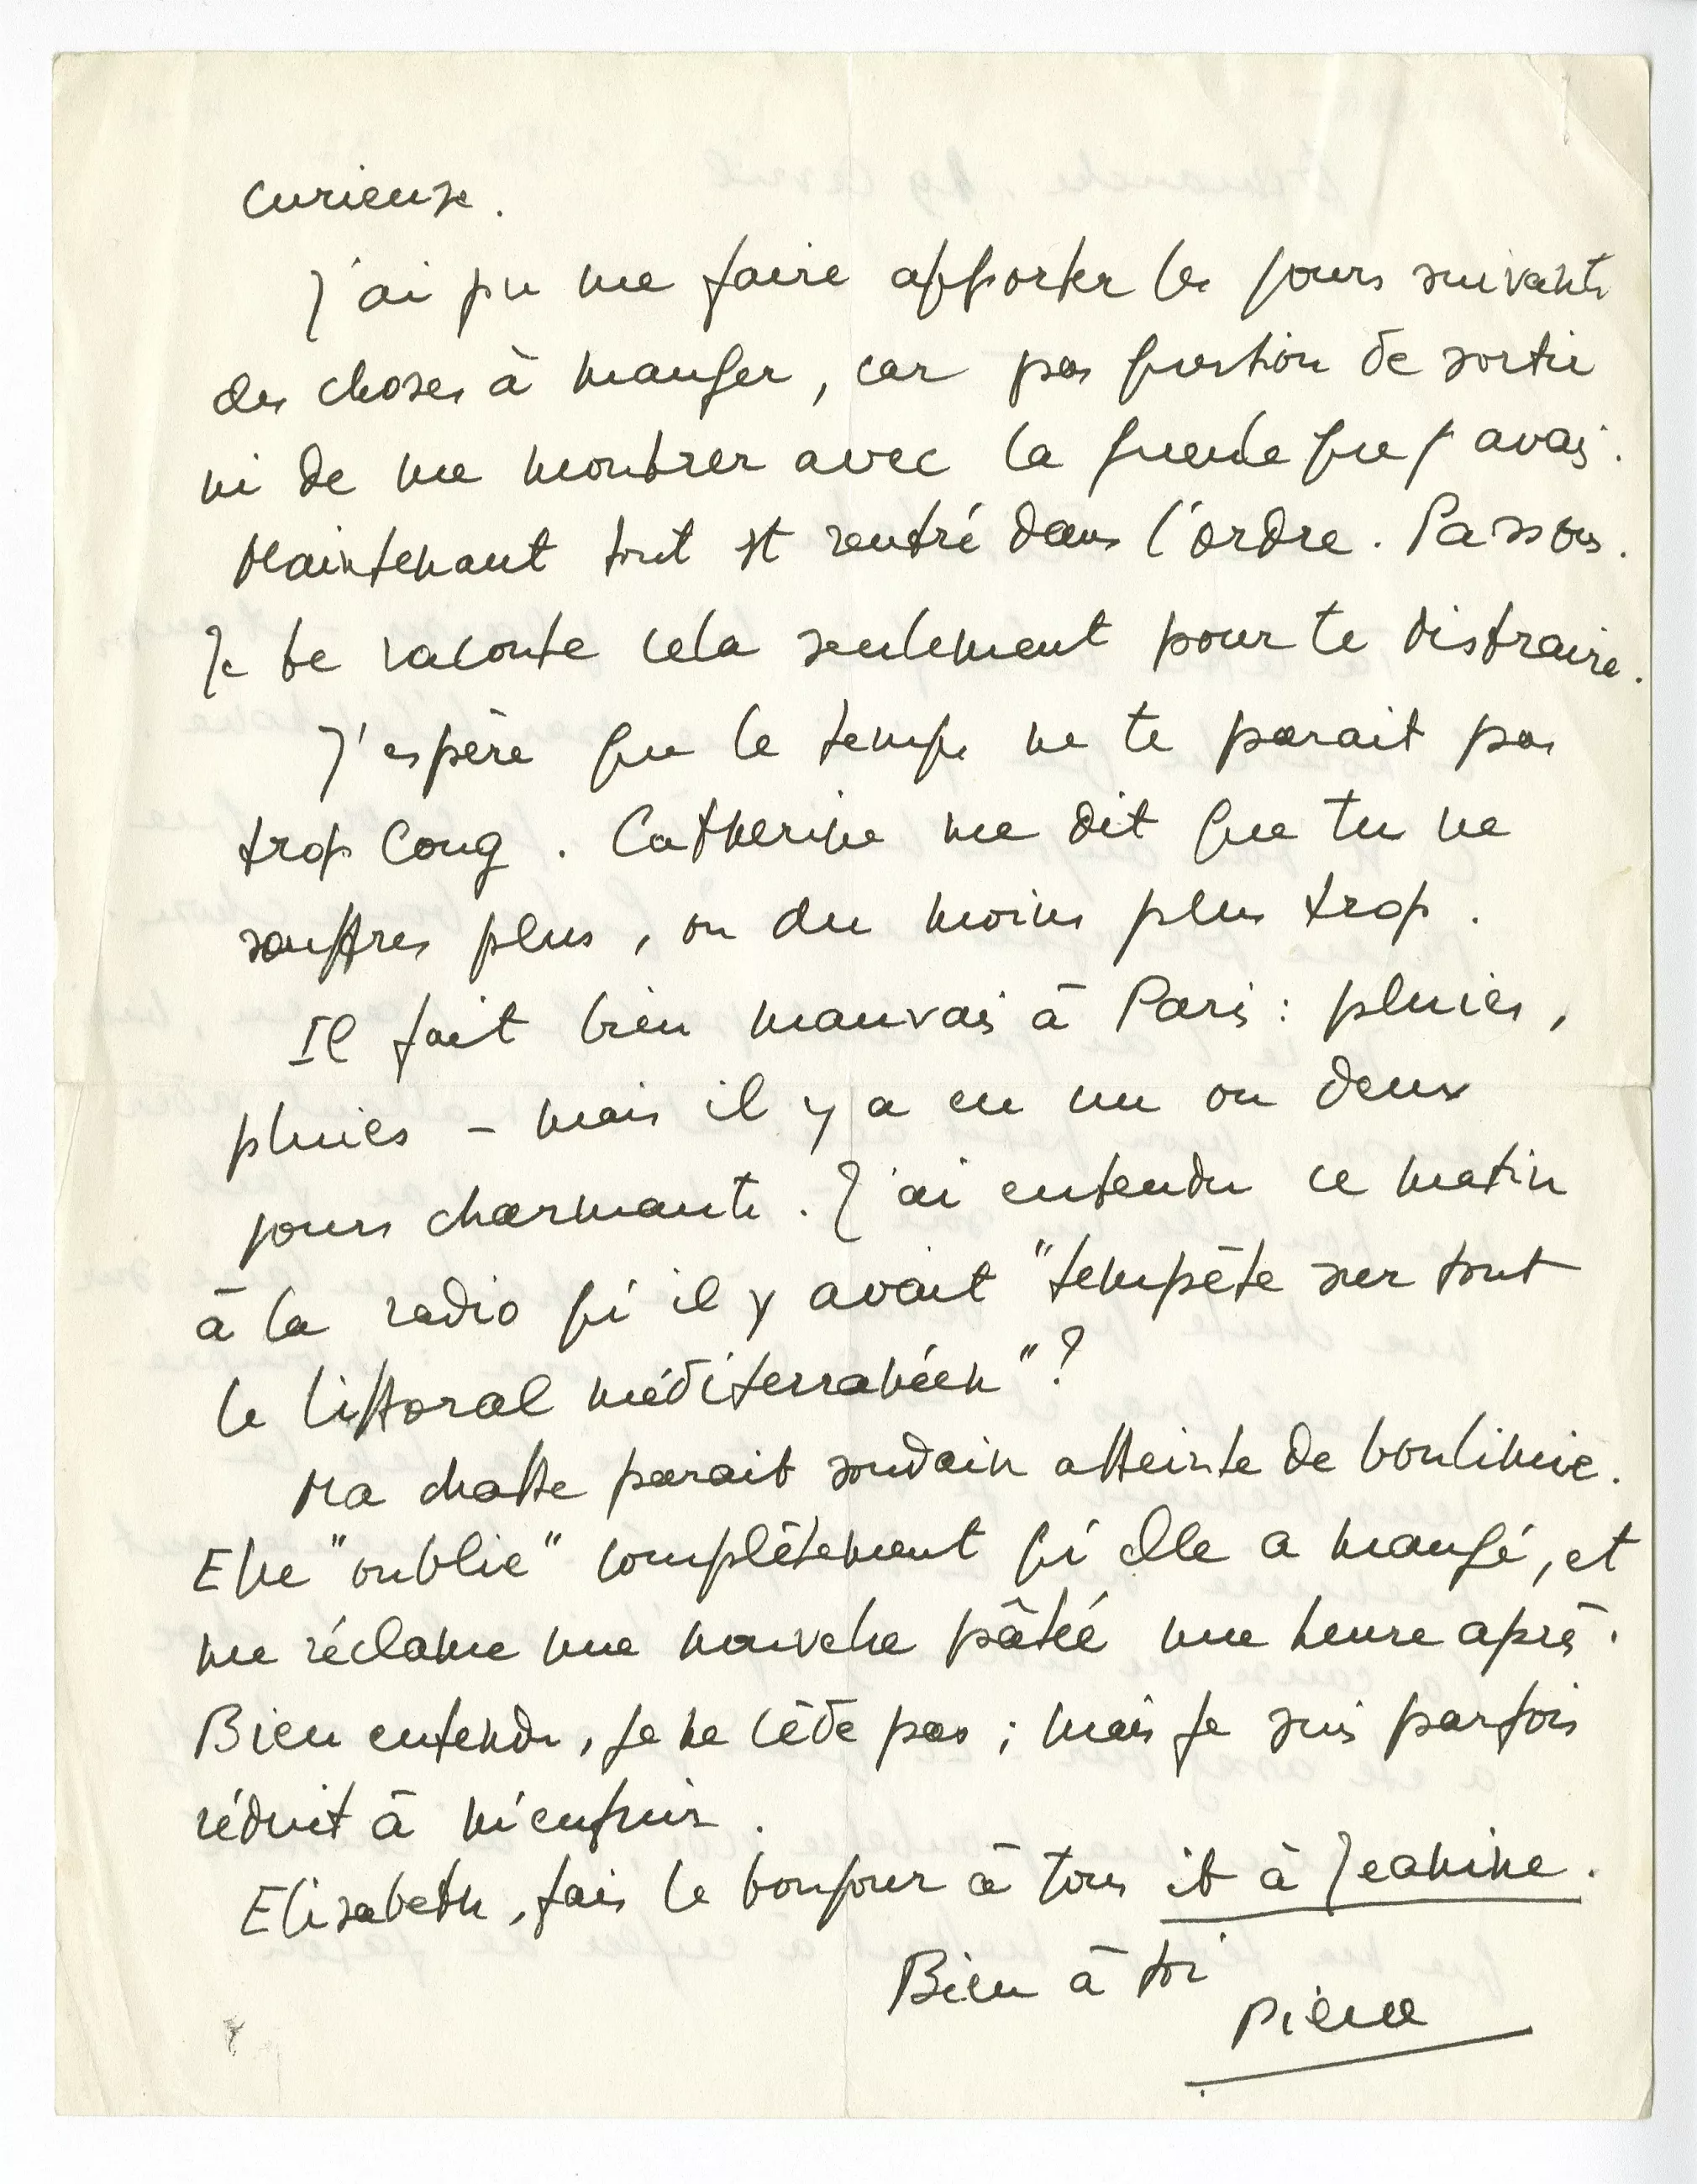 curieuse.
J'ai pu me faire apporter les jours suivants
des choses à manger, car pas question de sortir
ni de me montrer avec la gueule que j'avais.
Maintenant tout est rentré dans l'ordre. Passons.
Je te raconte cela seulement pour te distraire.
J'espère que le temps ne te parait pas
trop long. Catherine me dit que tu ne
souffres plus, ou du moins plus trop.
Il fait bien mauvais à Paris : pluies,
pluies – mais il y a eu un ou deux
jours charmants. J'ai entendu ce matin
à la radio qu'il y avait "tempête sur tout
le littoral méditerranéen" ?
Ma chatte parait soudain atteinte de boulimie.
Elle "oublie" complètement qu'elle a mangé, et
me réclame une nouvelle pâtée une heure après.
Bien entendu, je ne cède pas ; mais je suis parfois
réduit à m'enfuir.
Elisabeth, fais le bonjour à tous et à Jeanine.
Bien à toi
Pierre